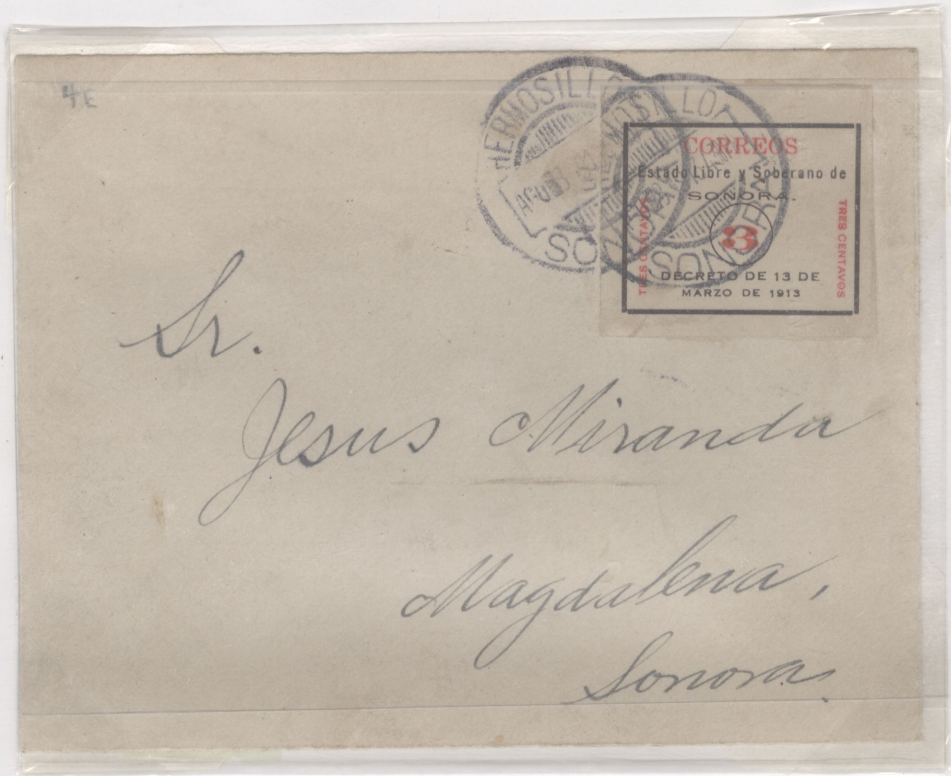 4E
HERMOSILLO
SONORA
CORREOS
Estado Libre y Soberano de
SONORA.
TRES CENTAVOS
3
TRES CENTAVOS
DECRETO DE 13 DE
MARZO DE 1913
Sr.
Jesus Miranda
Magdalena,
Sonora.